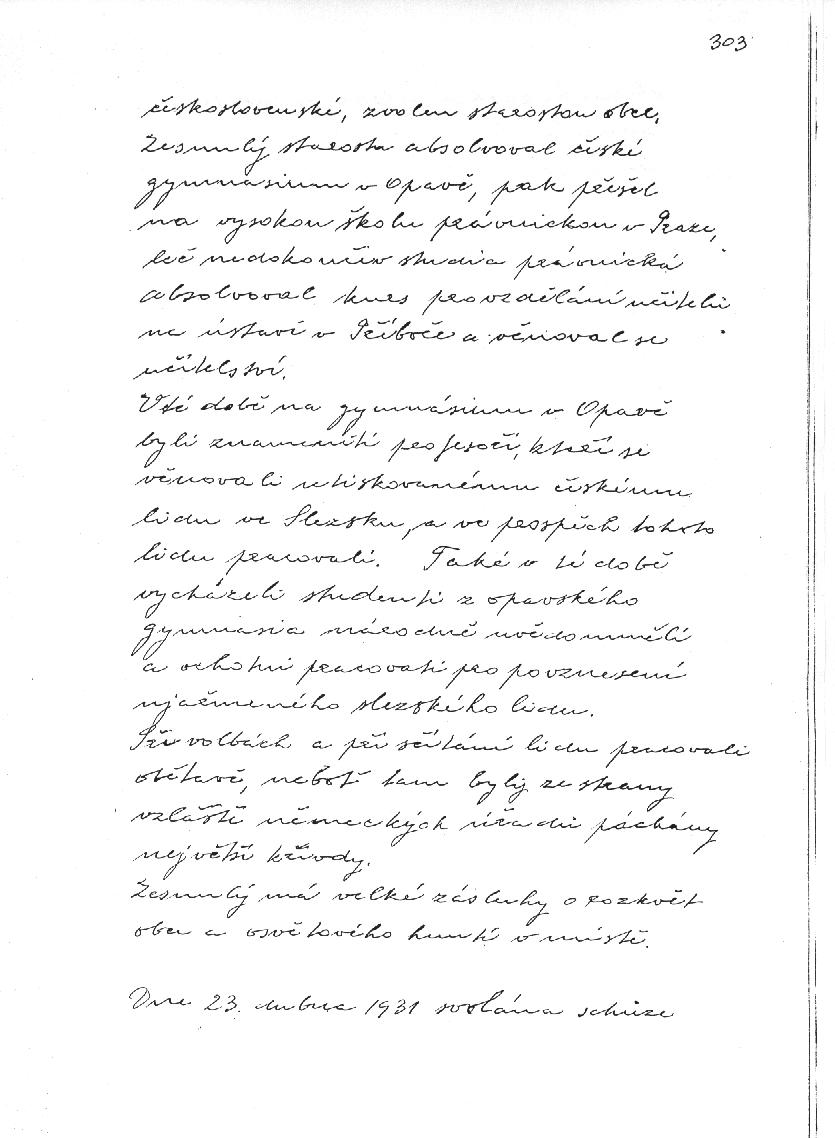 303
československé, zvolen starostou obce.
Zesnulý starosta absolvoval české
gymnasium v Opavě, pak přešel
na vysokou školu právnickou v Praze,
leč nedokončiv studia právnická
absolvoval kurs pro vzdělání učitelů
na ústavě v Příboře a věnoval se
učitelství.
V té době na gymnásium v Opavě
byli znamenití profesoři, kteří se
věnovali utiskovanému českému
lidu ve Slezsku, a ve prospěch tohoto
lidu pracovali. Také v té době
vycházeli studenti z opavského
gymnasia národně uvědomnělí
a ochotni pracovati pro povznesení
ujařmeného slezského lidu.
Při volbách a při sčítání lidu pracovali
obětavě, neboť tam byly ze strany
vzláště německých úřadů páchány
největší křivdy.
Zesnulý má velké zásluhy o rozkvět
obce a osvětového hnutí v místě.
Dne 23. dubna 1931 svolána schůze